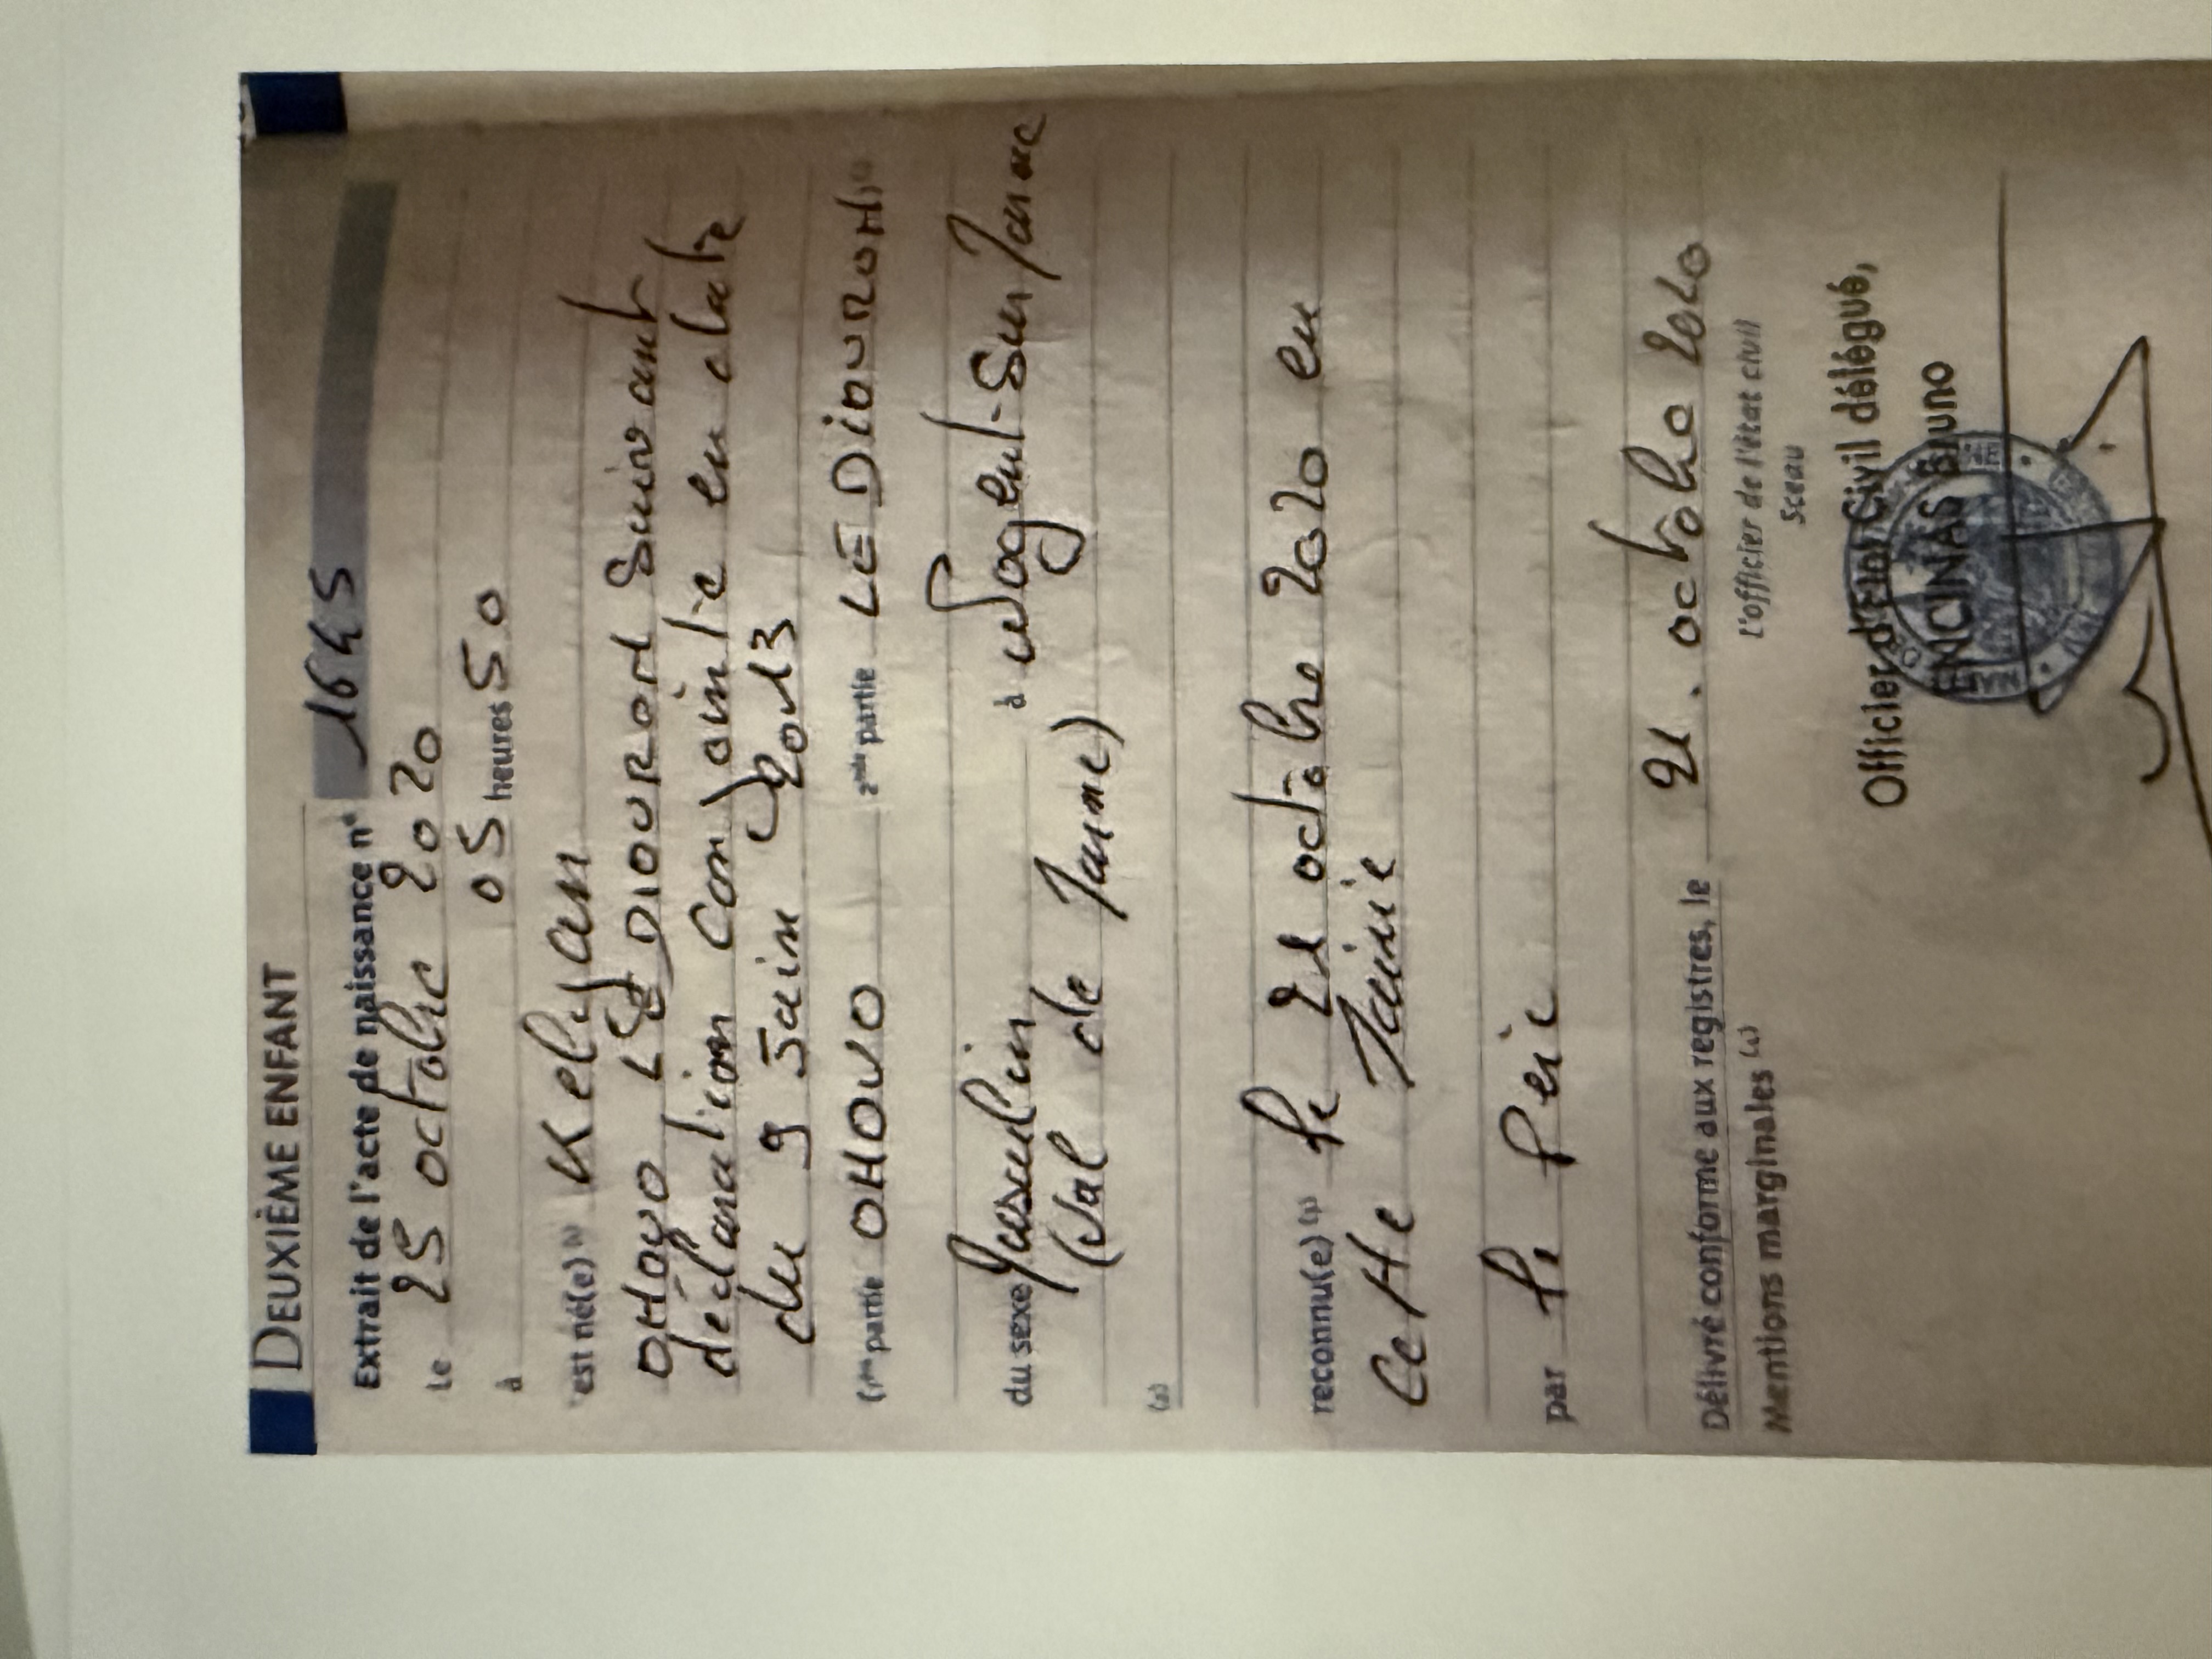 DEUXIÈME ENFANT
Extrait de l'acte de naissance n° 1645
Le 25 octobre 2020
à 05 heures 50
est né(e) (1) Kelyan
OHOUO LE DIOURON Suivant
déclaration conjointe en date
du 9 Juin 2013
(1ère partie OHOUO 2nde partie LE DIOURON) (1)
du sexe Masculin à Nogent-Sur-Marne
(Val de Marne)
(2)
reconnu(e) (3) le 21 octobre 2020 en
Cette Mairie
par le Père
Délivré conforme aux registres, le 21 octobre 2020
Mentions marginales (4)
L'officier de l'état civil
Sceau
Officier d'Etat Civil délégué,
ENCINAS Bruno